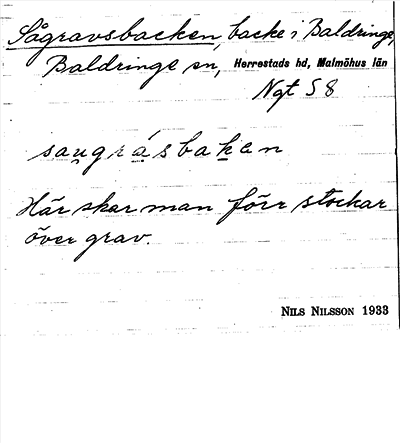 Sågravsbacken, backe i Baldringe,
Baldringe sn, Herrestads hd, Malmöhus län
Ngt S 8
saųgrásbaḵen
Här skar man förr stockar
över grav.
NILS NILSSON 1933